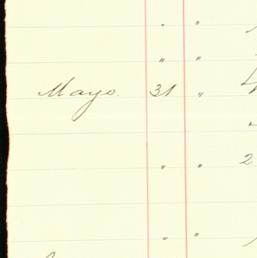 " "
" "
Mayo. 31 "
" " 2
" "